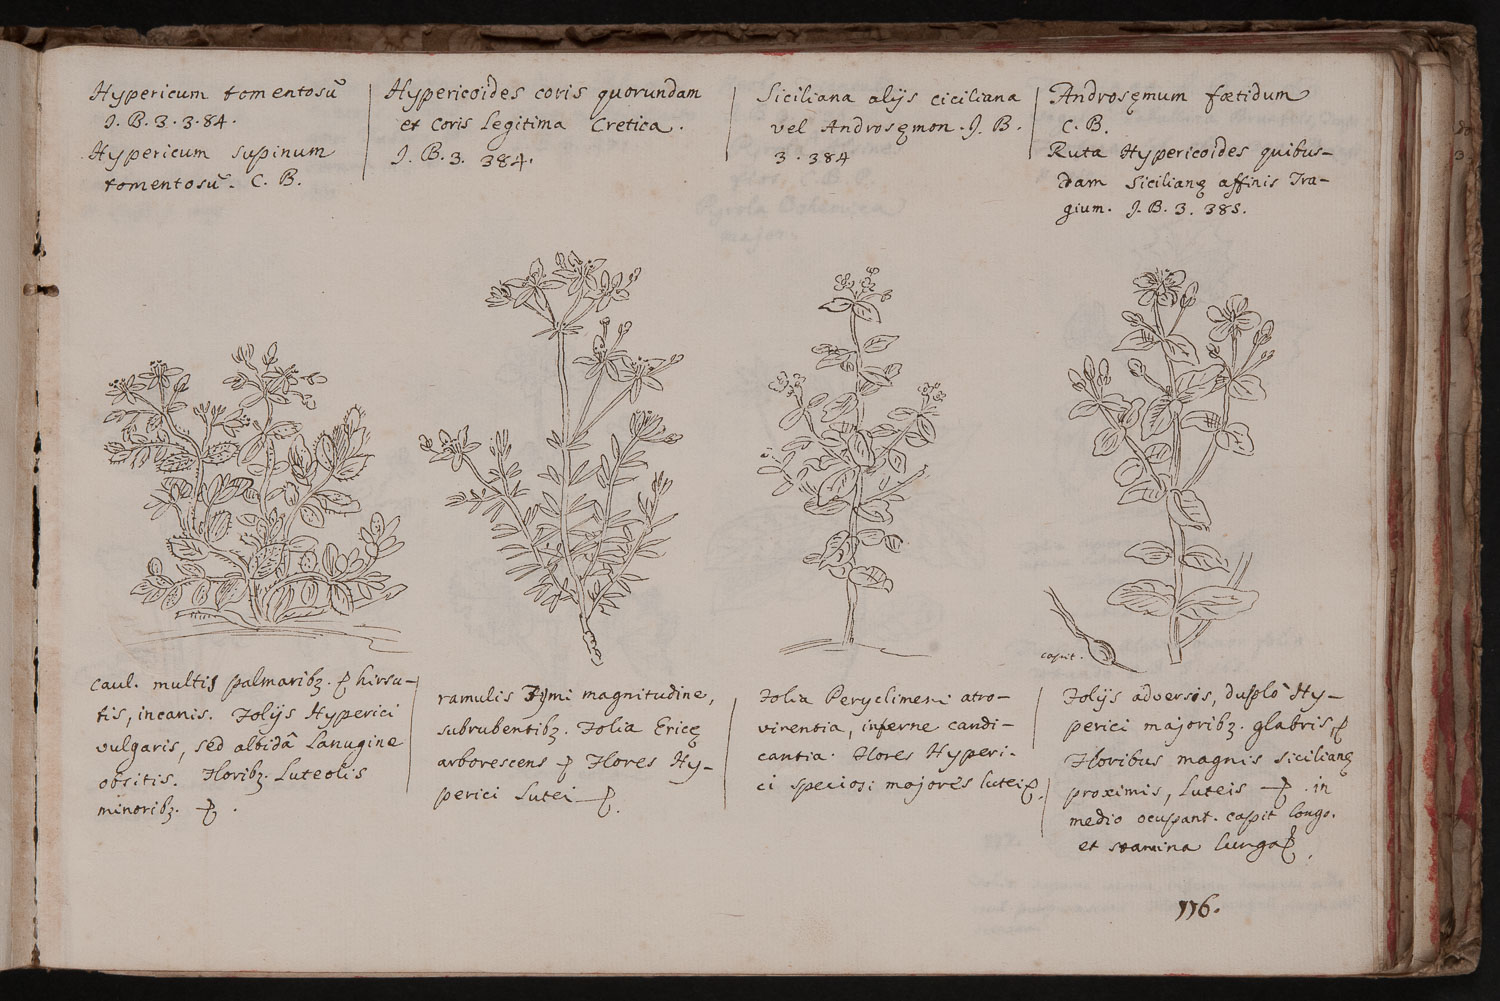 Hypericum tomentosũ
J. B. 3. 3. 84.
Hypericum supinum
tomentosũ. C. B.
Hypericoides coris quorundam
et Coris Legitima Cretica.
J. B. 3. 384.
Siciliana alijs ciciliana
vel Androsęmon. J. B.
3. 384
Androsęmum fœtidum
C. B.
Ruta Hypericoides quibus-
dam Sicilianę affinis Tra-
gium. J. B. 3. 385.
caput.
caul. multis palmaribꝫ. hirsu-
tis, incanis. Folijs Hyperici
vulgaris, sed albidâ Lanugine
obsitis. Floribꝫ. Luteolis
minoribꝫ.
ramulis Tymi magnitudine,
subrubentibꝫ. Folia Ericę
arborescens Flores Hy-
perici Lutei
Folia Peryclimeni atro-
virentia, inferne candi-
cantia. Flores Hyperi-
ci speciosi majores lutei
Folijs adversis, duplò Hy-
perici majoribꝫ. glabris,
Floribus magnis sicilianę
proximis, Luteis in
medio ocupant. capit longo.
et stamina Lunga
116.